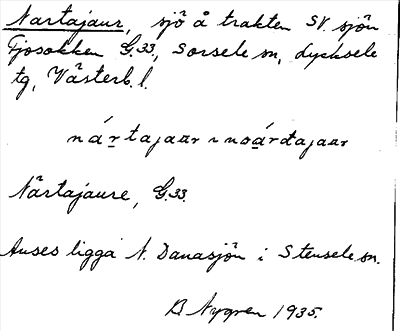 Nartajaur, sjö å trakten SV. sjön
Fjosokken G.33, Sorsele sn, Lycksele
tg, Västerb. l.
nártajaar ~ noárdajaar
Närtajaure, G.33.
Anses ligga N. Danasjön i Stensele sn.
B Nygren 1935.